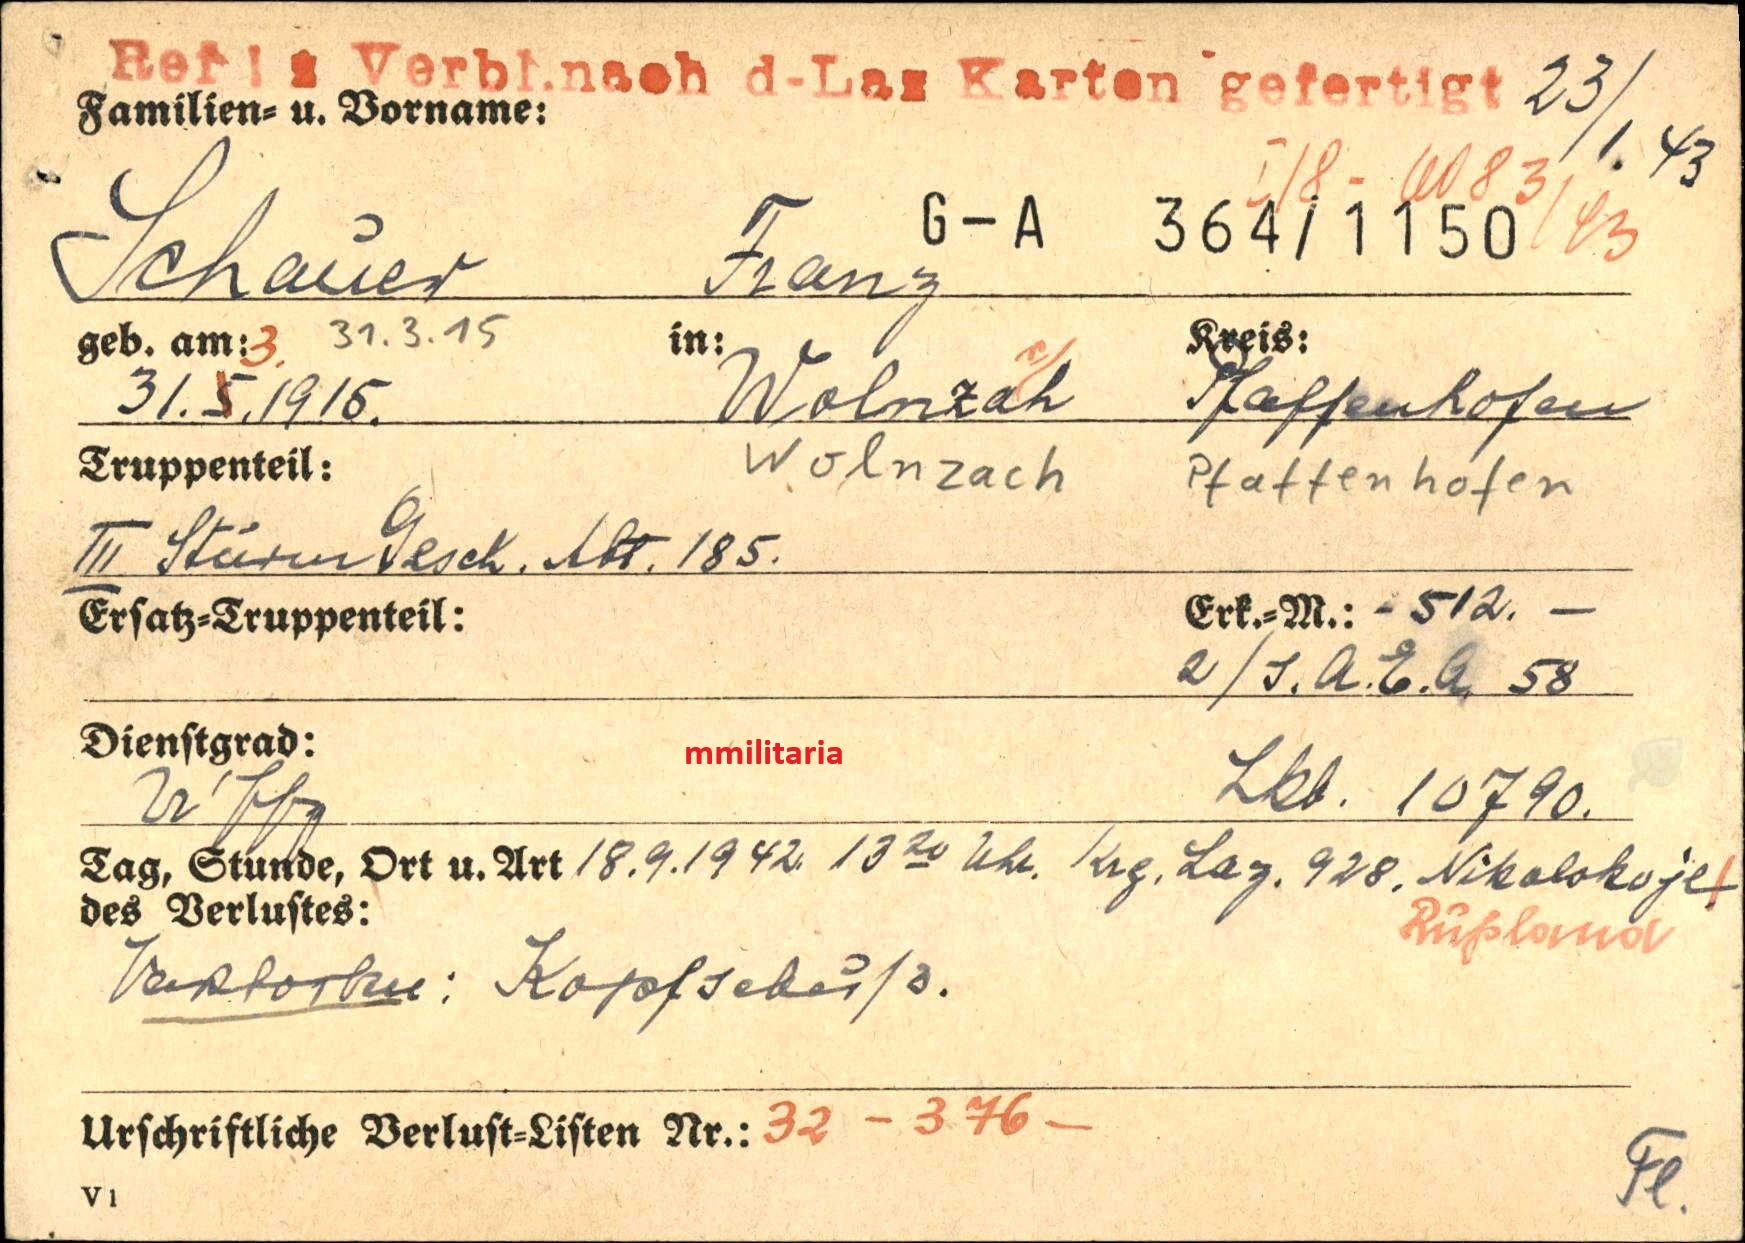 Ref I z Verbl.nach d-Laz Karten gefertigt 23/1.43
Familien- u. Vorname:
I/8 - 1083/43
G-A 364/1150
Schauer Franz
geb. am: 3. 31.3.15 in: Kreis:
31.5.1915. Wolnzach Pfaffenhofen
Truppenteil: Wolnzach Pfaffenhofen
III Sturm Gesch. Abt. 185.
Ersatz-Truppenteil: Erk.-M.: - 512. -
2/s.A.E.A. 58
Dienstgrad:
U'ffz Lkb. 10790.
Tag, Stunde, Ort u. Art 18.9.1942. 13 20 Uhr. Krg. Laz. 928. Nikolskoje
des Verlustes: Rußland
Verstorben: Kopfschuß.
Urschriftliche Verlust-Listen Nr.: 32 - 376 -
V 1
Fl.
mmilitaria